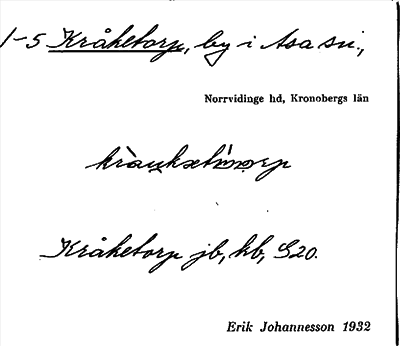 1-5 Kråketorp, by i Asa sn.,
Norrvidinge hd, Kronobergs län
Kråketorp jb, kb, G20.
Erik Johannesson 1932